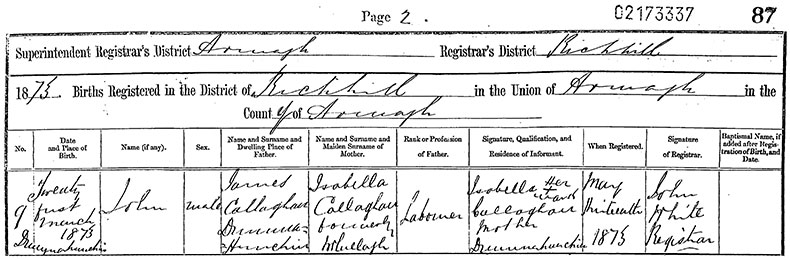 Page 2.
02173337
87
Superintendent Registrar's District Armagh Registrar's District Richhill
1873. Births Registered in the District of Richhill in the Union of Armagh in the
County of Armagh
No. Date and Place of Birth. Name (if any). Sex. Name and Surname and Dwelling Place of Father. Name and Surname and Maiden Surname of Mother. Rank or Profession of Father. Signature, Qualification, and Residence of Informant. When Registered. Signature of Registrar. Baptismal Name, if added after Registration of Birth, and Date.
Twenty James Isabella Isabella Her mark May John
9 first March John male Callaghan Callaghan Labourer Callaghan thirteenth White
1873 formerly Mother 1873 Registrar
McCullagh